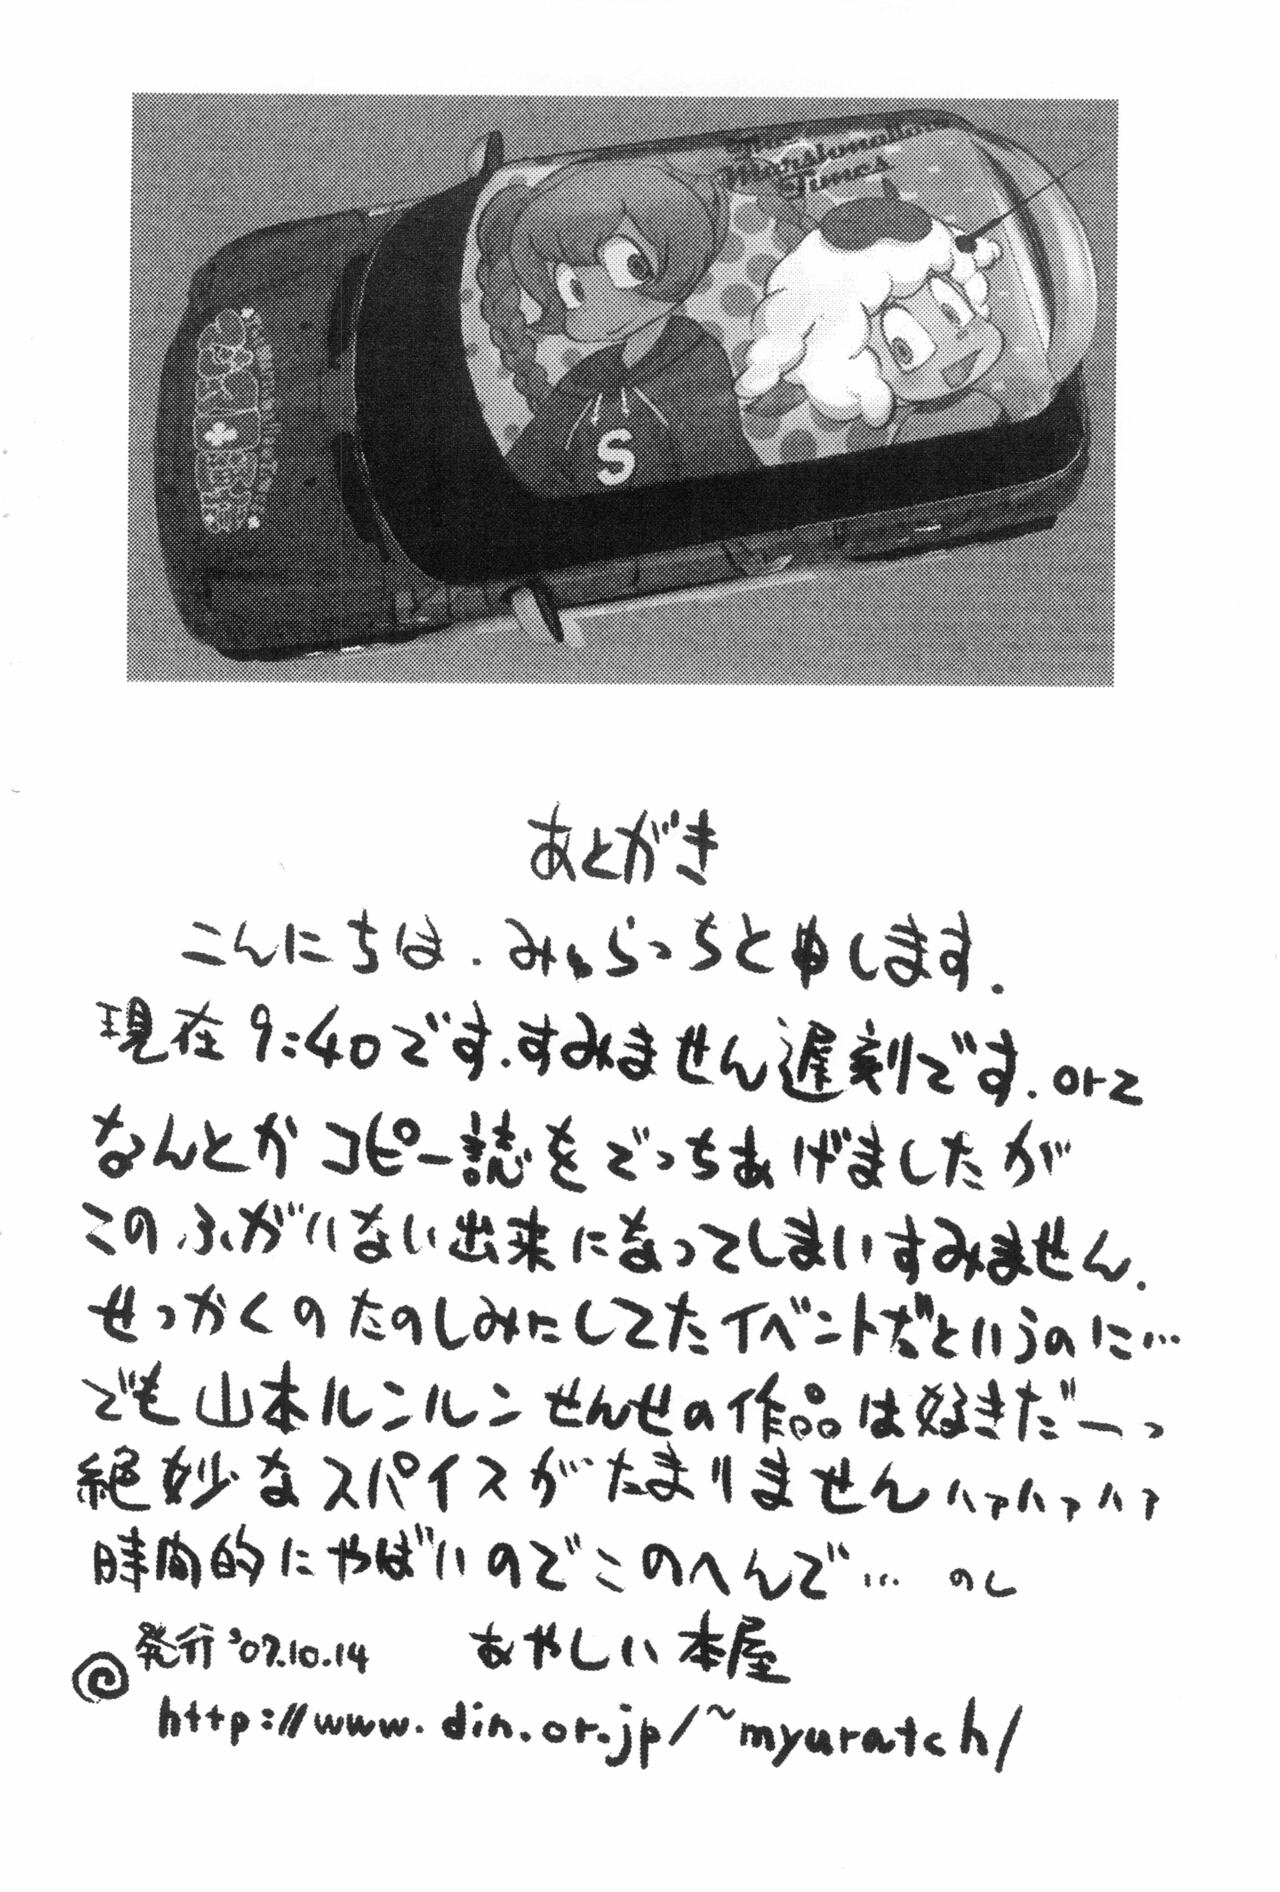 The
Marshmallow
Times
S
Marshmallow Times
あとがき
こんにちは．みゅらっちと申します．
現在9:40です．すみません遅刻です．orz
なんとかコピー誌をでっちあげましたが
このふがいない出来になってしまいすみません．
せっかくのたのしみにしてたイベントだというのに…
でも山本ルンルンせんせの作品は好きだーっ
絶妙なスパイスがたまりませんハァハァハァ
時間的にやばいのでこのへんで… のし
発行'07.10.14 あやしい本屋
http://www.din.or.jp/~myuratch/